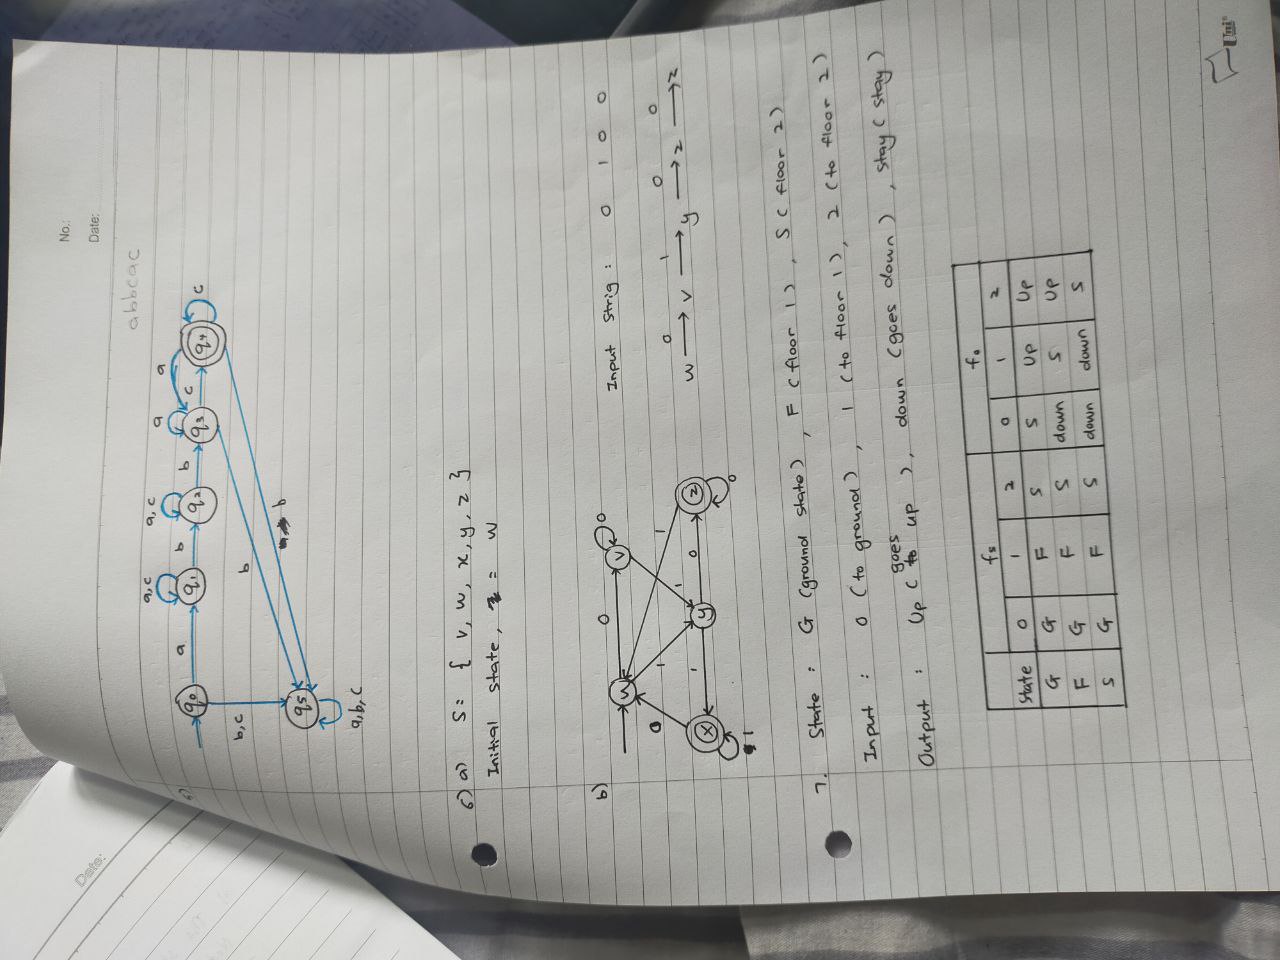 No.:
Date:
abbcac
5)
q0 a q1 b q2 b q3 c q4
a,c a,c a a c
b,c b b
q5
a,b,c
6) a) S = { v, w, x, y, z }
Initial state, = w
b)
w 0 v 0
1 1 1
x 1 y 0 z 0
0 1
Input Strig : 0 1 0 0
w 0→ v 1→ y 0→ z 0→ z
7. State : G (ground state), F (floor 1), S (floor 2)
Input : 0 (to ground), 1 (to floor 1), 2 (to floor 2)
Output : Up (goes up), down (goes down), stay (stay)
fs fo
State 0 1 2 0 1 2
G G F S S Up Up
F G F S down S Up
S G F S down down S
Uni
Date: